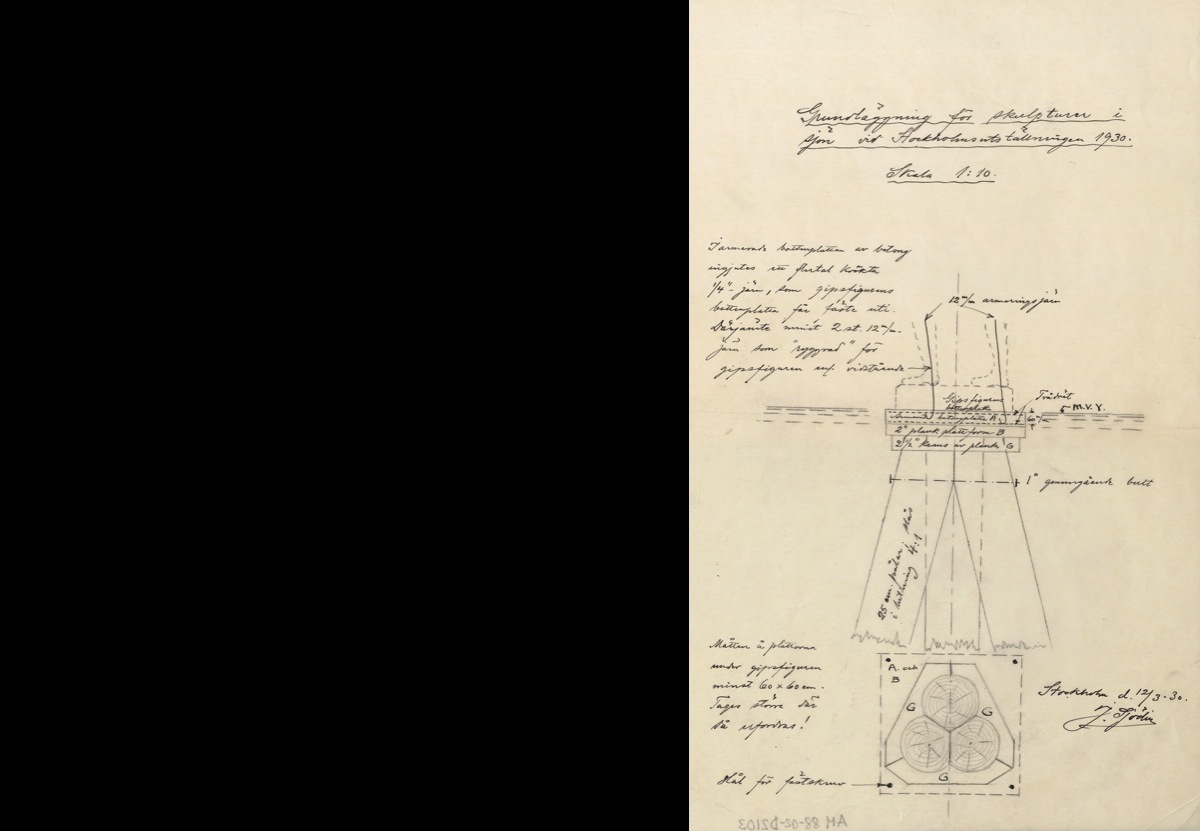 Grundläggning för skulpturer i
sjön vid Stockholmsutställningen 1930.
Skala 1:10.
I armerade bottenplattan av betong
ingjutes ett flertal krökta
1/4"- järn, som gipsfigurens
bottenplatta får fäste uti.
Därjämte minst 2 st. 12 m/m.
järn som "ryggrad" för
gipsfiguren enl. vidstående
12 m/m armeringsjärn
Gipsfigurens
bottenplatta
Trådnät
M.V.Y.
Armerad betongplatta A
60 m/m
2" plank plattform B
2 1/2" krans av plank G
1" genomgående bult
25 cm. pålar, slås
i lutning 4:1
Måtten å plattorna
under gipsfiguren
minst 60 x 60 cm.
Tages större där
så erfordras!
A. och
B
G
G
G
Stockholm d. 12/3 - 30.
J. Sjödin
Hål för fästskruv
AM 88-02-D2103